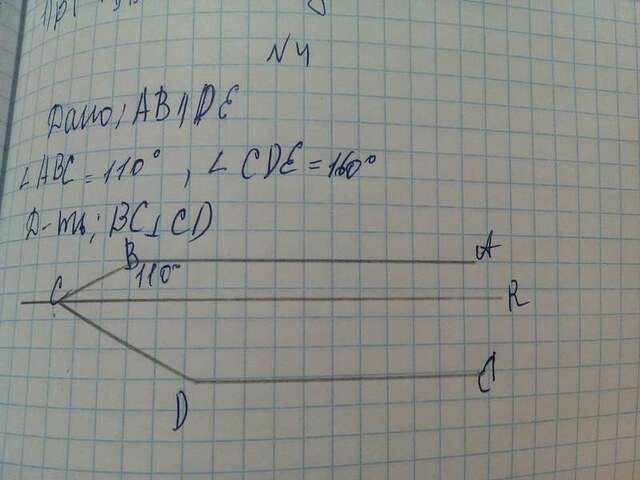 N4
Дано; AB || DE
∠ABC = 110°, ∠CDE = 160°
Д-ть; BC ⊥ CD
B
A
110°
C
R
D